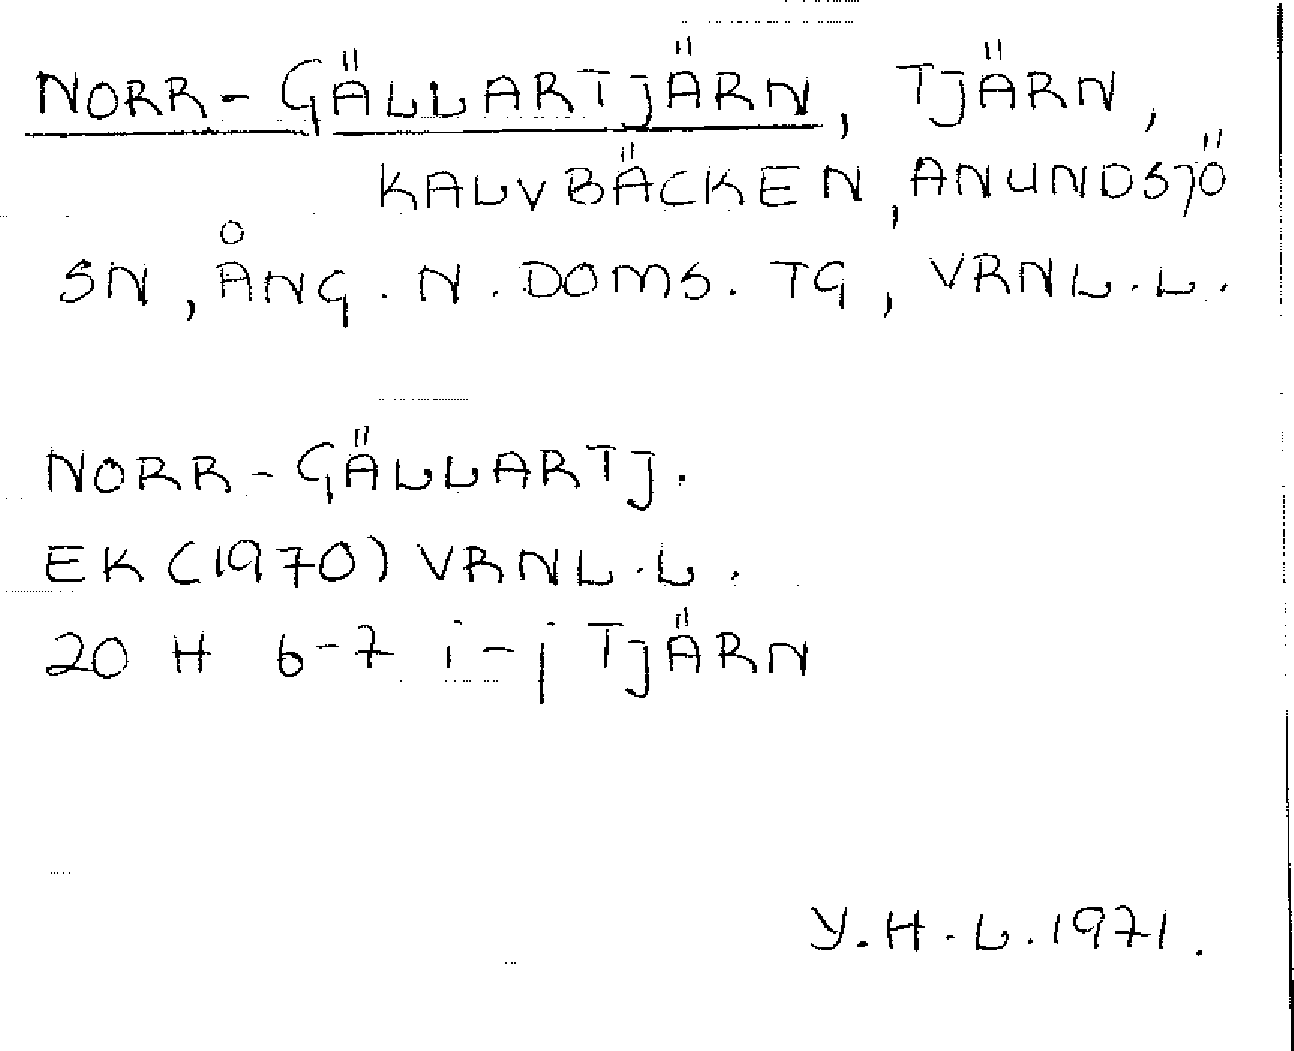 NORR-GÄLLARTJÄRN, TJÄRN,
KALVBÄCKEN, ANUNDSJÖ
SN, ÅNG. N. DOMS. TG, VRNL.L.
NORR-GÄLLARTJ.
EK (1970) VRNL.L.
20 H 6-7 i-j TJÄRN
Y.H.L. 1971.